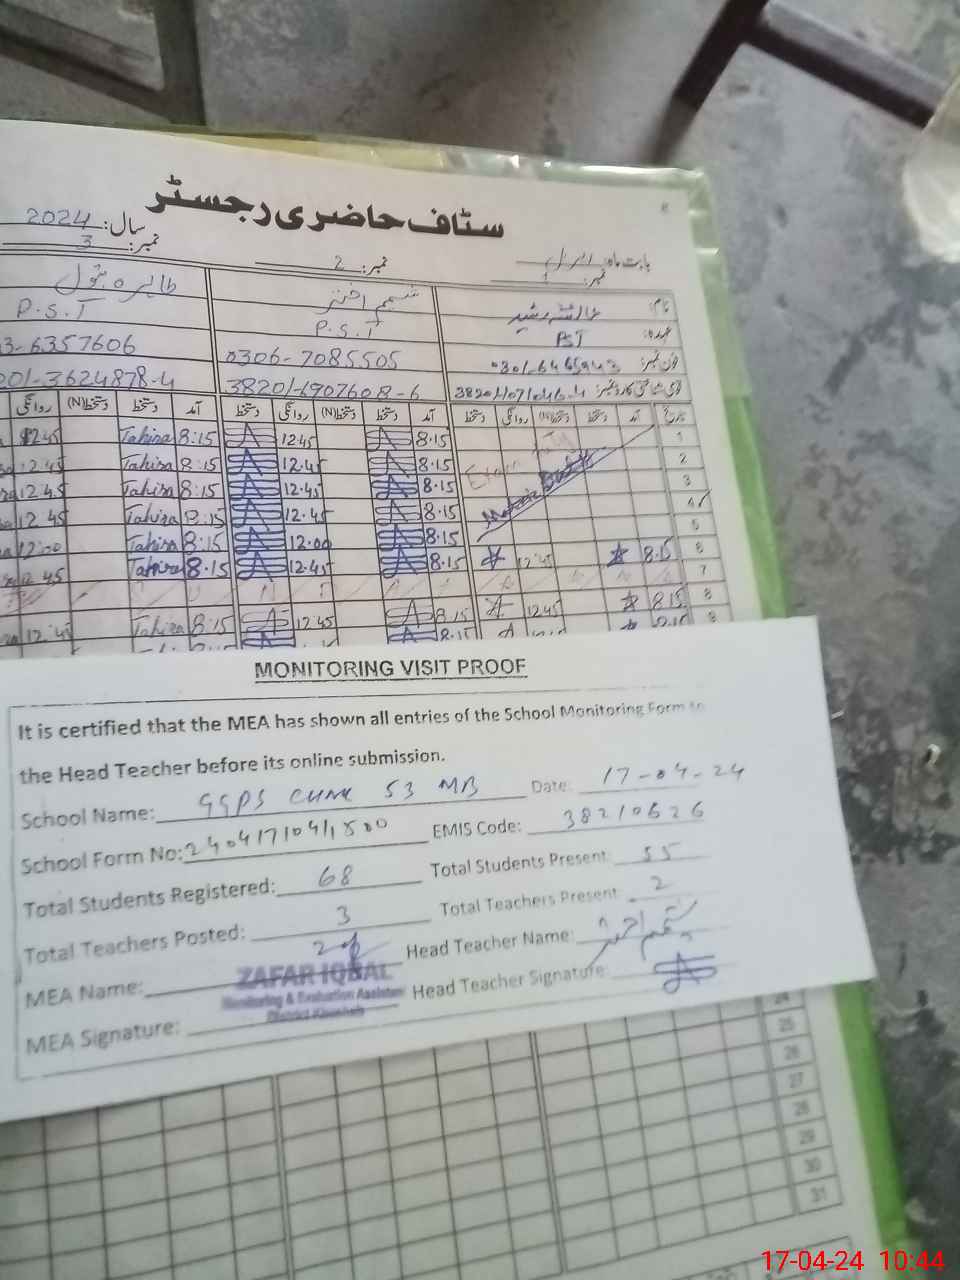 سٹاف حاضری رجسٹر
بابت ماہ: اپریل سال: 2024
نمبر: 1 نمبر: 2 نمبر: 3
نام: شمیم اختر طاہرہ بتول
عہدہ: PST P.S.T P.S.T
فون نمبر: 0301-6465943 0306-7085505 3-6357606
38201-1907608-6 01-3624878-4
تاریخ آمد دستخط دستخط(N) روانگی دستخط آمد دستخط دستخط(N) روانگی دستخط آمد دستخط دستخط(N) روانگی
1 8.15 12.45 8:15 Tahira 12.45
2 8.15 12.45 8:15 Tahira 12.45
3 8.15 12.45 8:15 Tahira 12.45
4 8.15 12.45 8:15 Tahira 12 45
5 8.15 12.00 8:15 Tahira 12:00
6 8.15 12.45 8.15 12.45 8.15 Tahira 12.45
7 S U N
8 8.15 12.45 8.15 12.45 8:15 Tahira 12.45
9 8.15
MONITORING VISIT PROOF
It is certified that the MEA has shown all entries of the School Monitoring Form to
the Head Teacher before its online submission.
School Name: GGPS CHAK 53 MB Date: 17-04-24
School Form No: EMIS Code: 38210626
Total Students Registered: 68 Total Students Present: 55
Total Teachers Posted: 3 Total Teachers Present: 2
MEA Name: Head Teacher Name: شمیم اختر
ZAFAR IQBAL
Monitoring & Evaluation Assistant
District Khushab
MEA Signature: Head Teacher Signature:
24
25
26
27
28
29
30
31
17-04-24 10:44